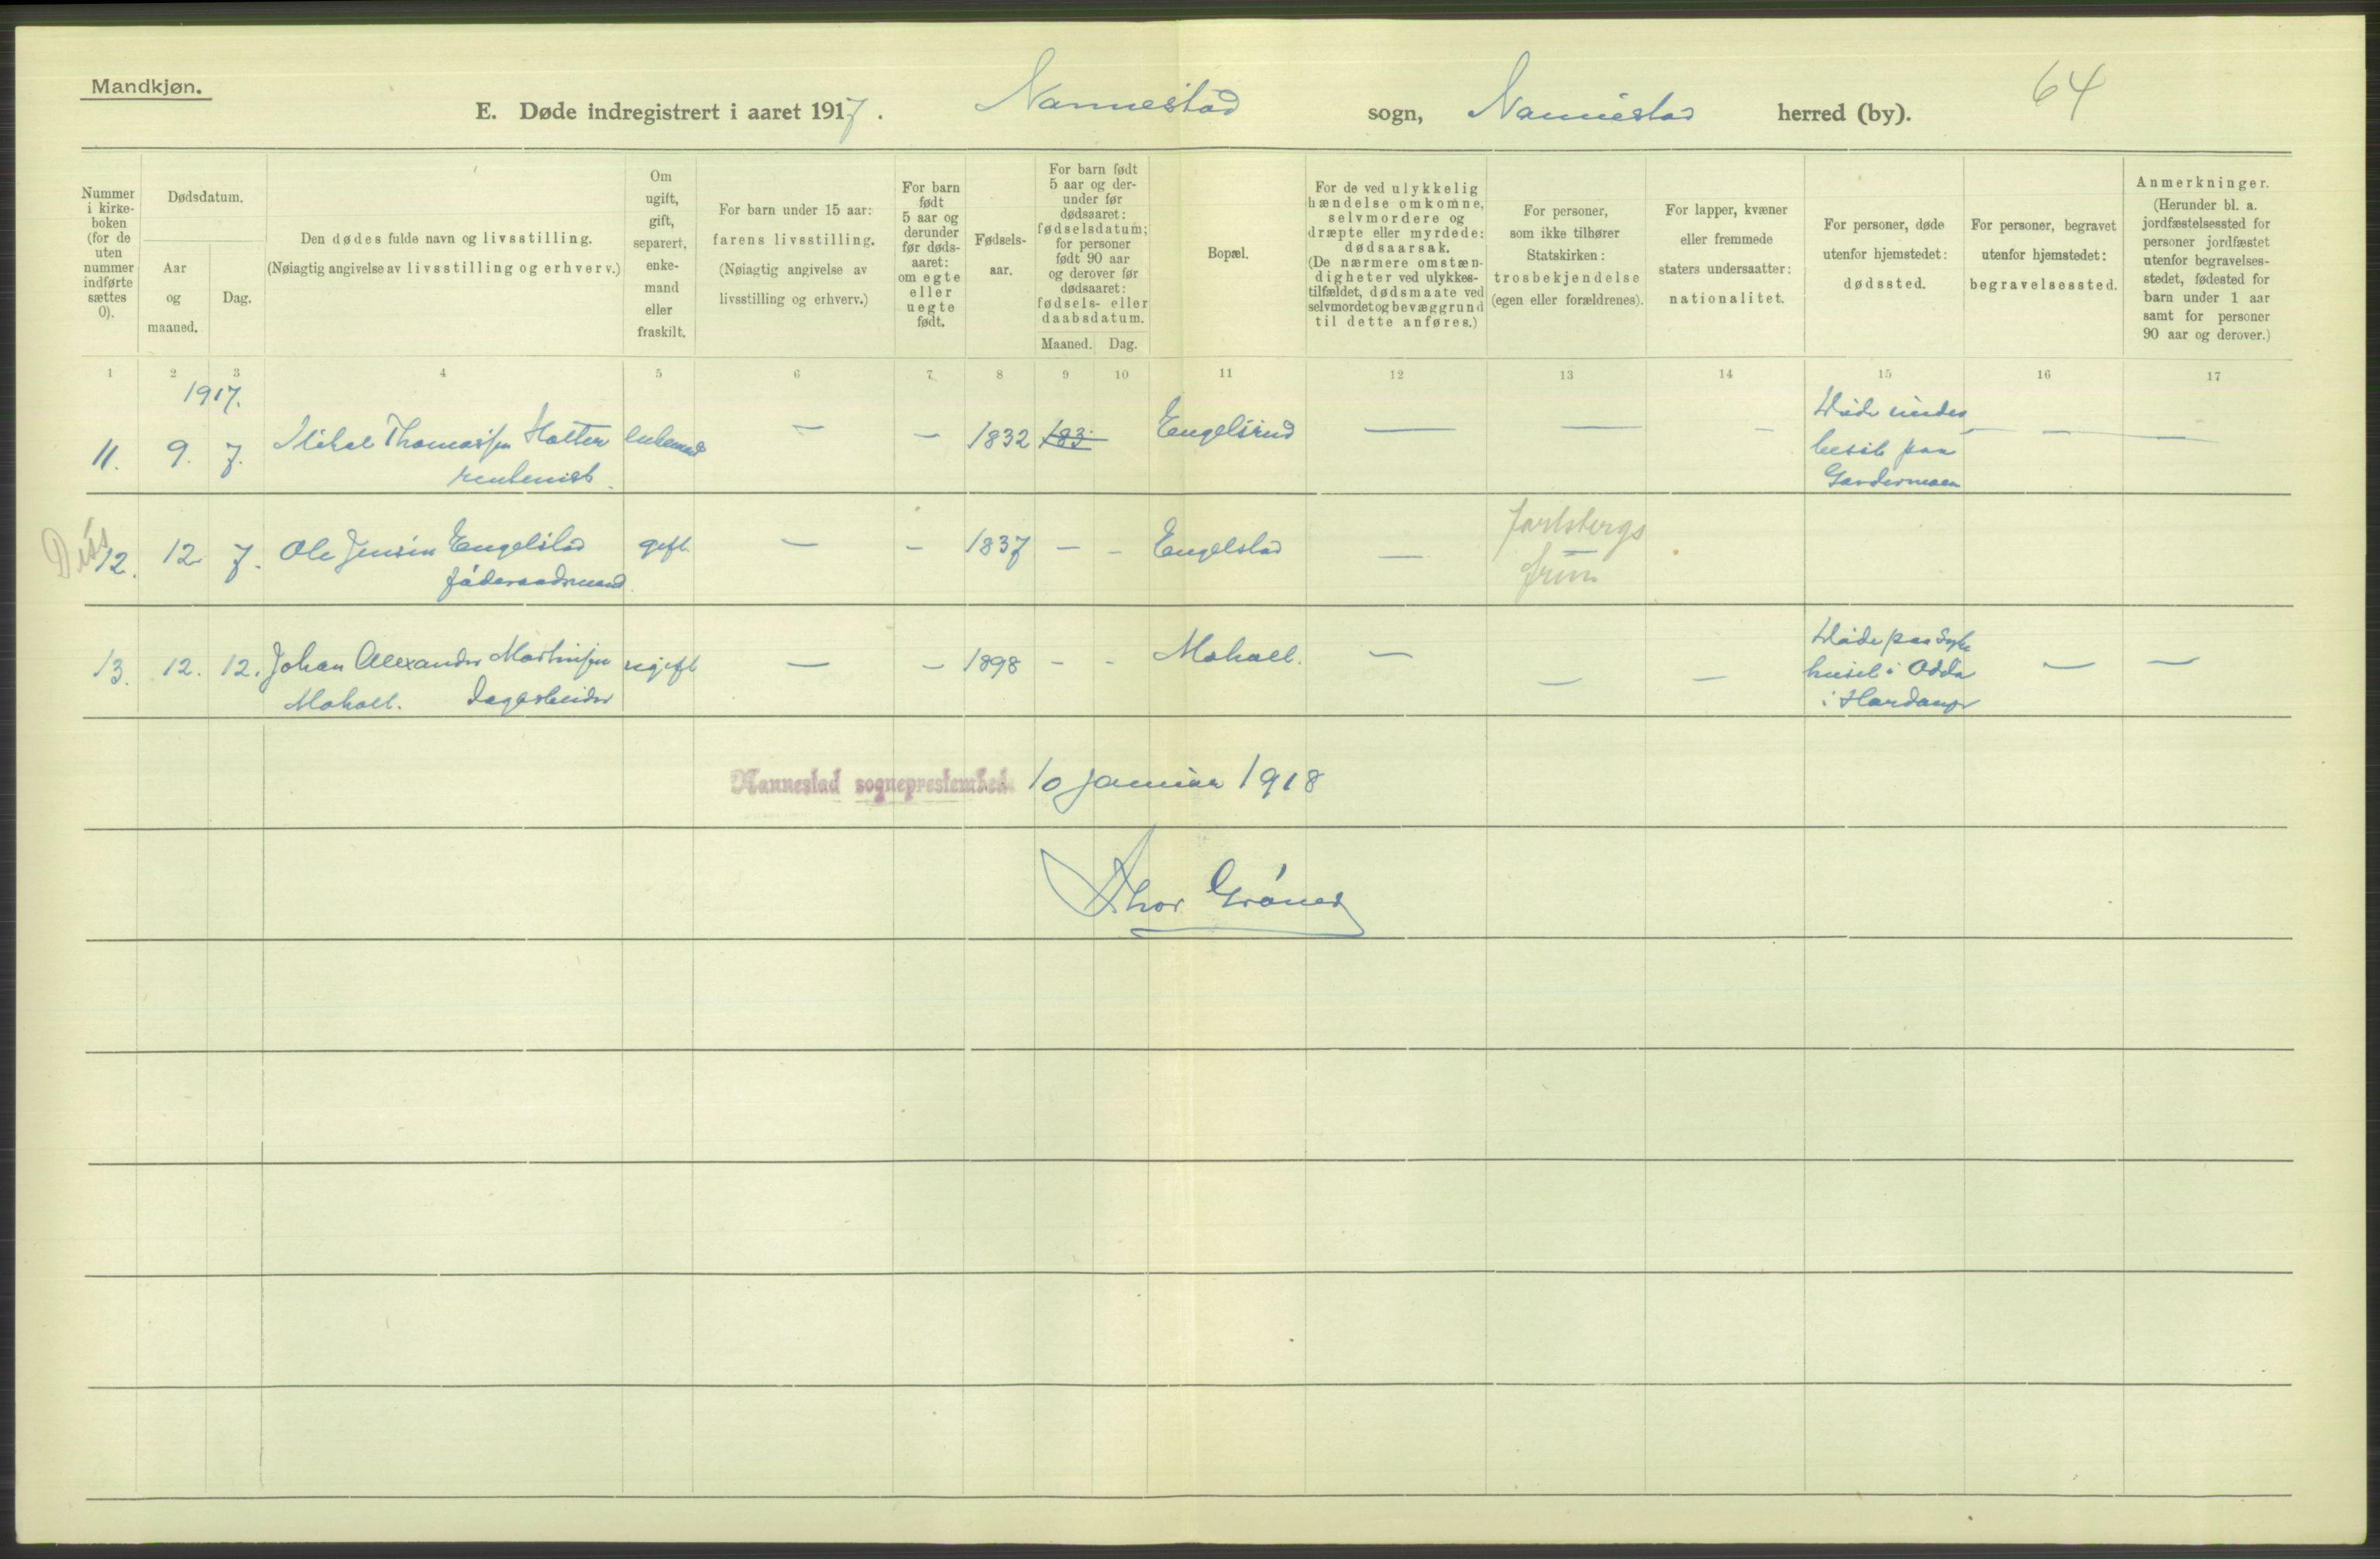 Mandkjøn.
E. Døde indregistrert i aaret 1917. Nannestad sogn, Nannestad herred (by). 64
Nummer i kirke-boken (for de uten nummer indførte sættes 0).
Dødsdatum.
Aar og maaned.
Dag.
Den dødes fulde navn og livsstilling.
(Nøiagtig angivelse av livsstilling og erhverv.)
Om ugift, gift, separert, enke-mand eller fraskilt.
For barn under 15 aar:
farens livsstilling.
(Nøiagtig angivelse av
livsstilling og erhverv.)
For barn født 5 aar og derunder før døds-aaret: om egte eller uegte født.
Fødsels-aar.
For barn født 5 aar og der-under før dødsaaret: fødselsdatum; for personer født 90 aar og derover før dødsaaret: fødsels- eller daabsdatum.
Maaned. Dag.
Bopæl.
For de ved ulykkelig hændelse omkomne, selvmordere og dræpte eller myrdede: dødsaarsak. (De nærmere omstæn-digheter ved ulykkes-tilfældet, dødsmaate ved selvmordet og bevæggrund til dette anføres.)
For personer, som ikke tilhører Statskirken: trosbekjendelse (egen eller forældrenes).
For lapper, kvæner eller fremmede staters undersaatter: nationalitet.
For personer, døde utenfor hjemstedet: dødssted.
For personer, begravet utenfor hjemstedet: begravelsessted.
Anmerkninger. (Herunder bl. a. jordfæstelsessted for personer jordfæstet utenfor begravelses-stedet, fødested for barn under 1 aar samt for personer 90 aar og derover.)
1 2 3 4 5 6 7 8 9 10 11 12 13 14 15 16 17
1917.
11. 9. 7. Mikal Thomassen Holter enkemand — — 1832 183 Engelsrud — — — Døde under — —
rentenist. besøk paa
Gardermoen
Diss
12. 12 7. Ole Jensen Engelstad gift — — 1837 — — Engelstad — Jarlsbergs
föderaadsmand frim
13. 12. 12. Johan Alexander Martinsen ugift — — 1898 — — Moholt. — — — Døde paa Syke — —
Moholt. Dagarbeider huset i Odda
i Hardanger
Nannestad sogneprestembede 10 januar 1918
Thor Grönes